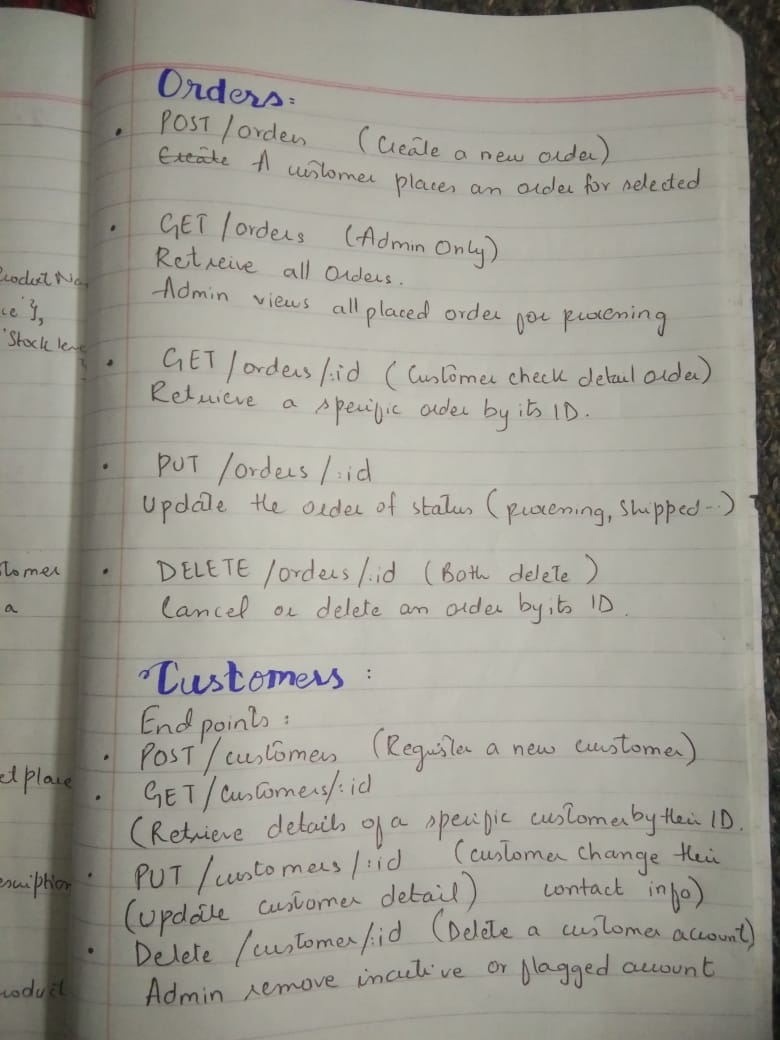 Orders:
• POST /orders (Create a new order)
Create A customer places an order for selected
• GET /orders (Admin Only)
Retreive all orders.
Admin views all placed order for processing
• GET /orders/:id (Customer check detail order)
Retrieve a specific order by its ID.
• PUT /orders/:id
Update the order of status (processing, shipped--)
• DELETE /orders/:id (Both delete)
Cancel or delete an order by its ID.
Customers:
Endpoints:
• POST/customers (Register a new customer)
• GET/customers/:id
(Retrieve details of a specific customer by their ID.
• PUT /customers/:id (customer change their
(Update customer detail) contact info)
• Delete /customer/:id (Delete a customer account)
Admin remove inactive or flagged account
oduct Na
ce },
'Stock leve
}
tomer
a
et place
escription
roduct